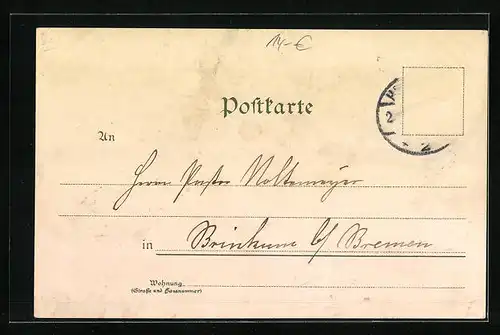 14-€
Postkarte
An
Herrn Pastor Noltemeyer
in Brinkum b/ Bremen
Wohnung
(Straße und Hausnummer)